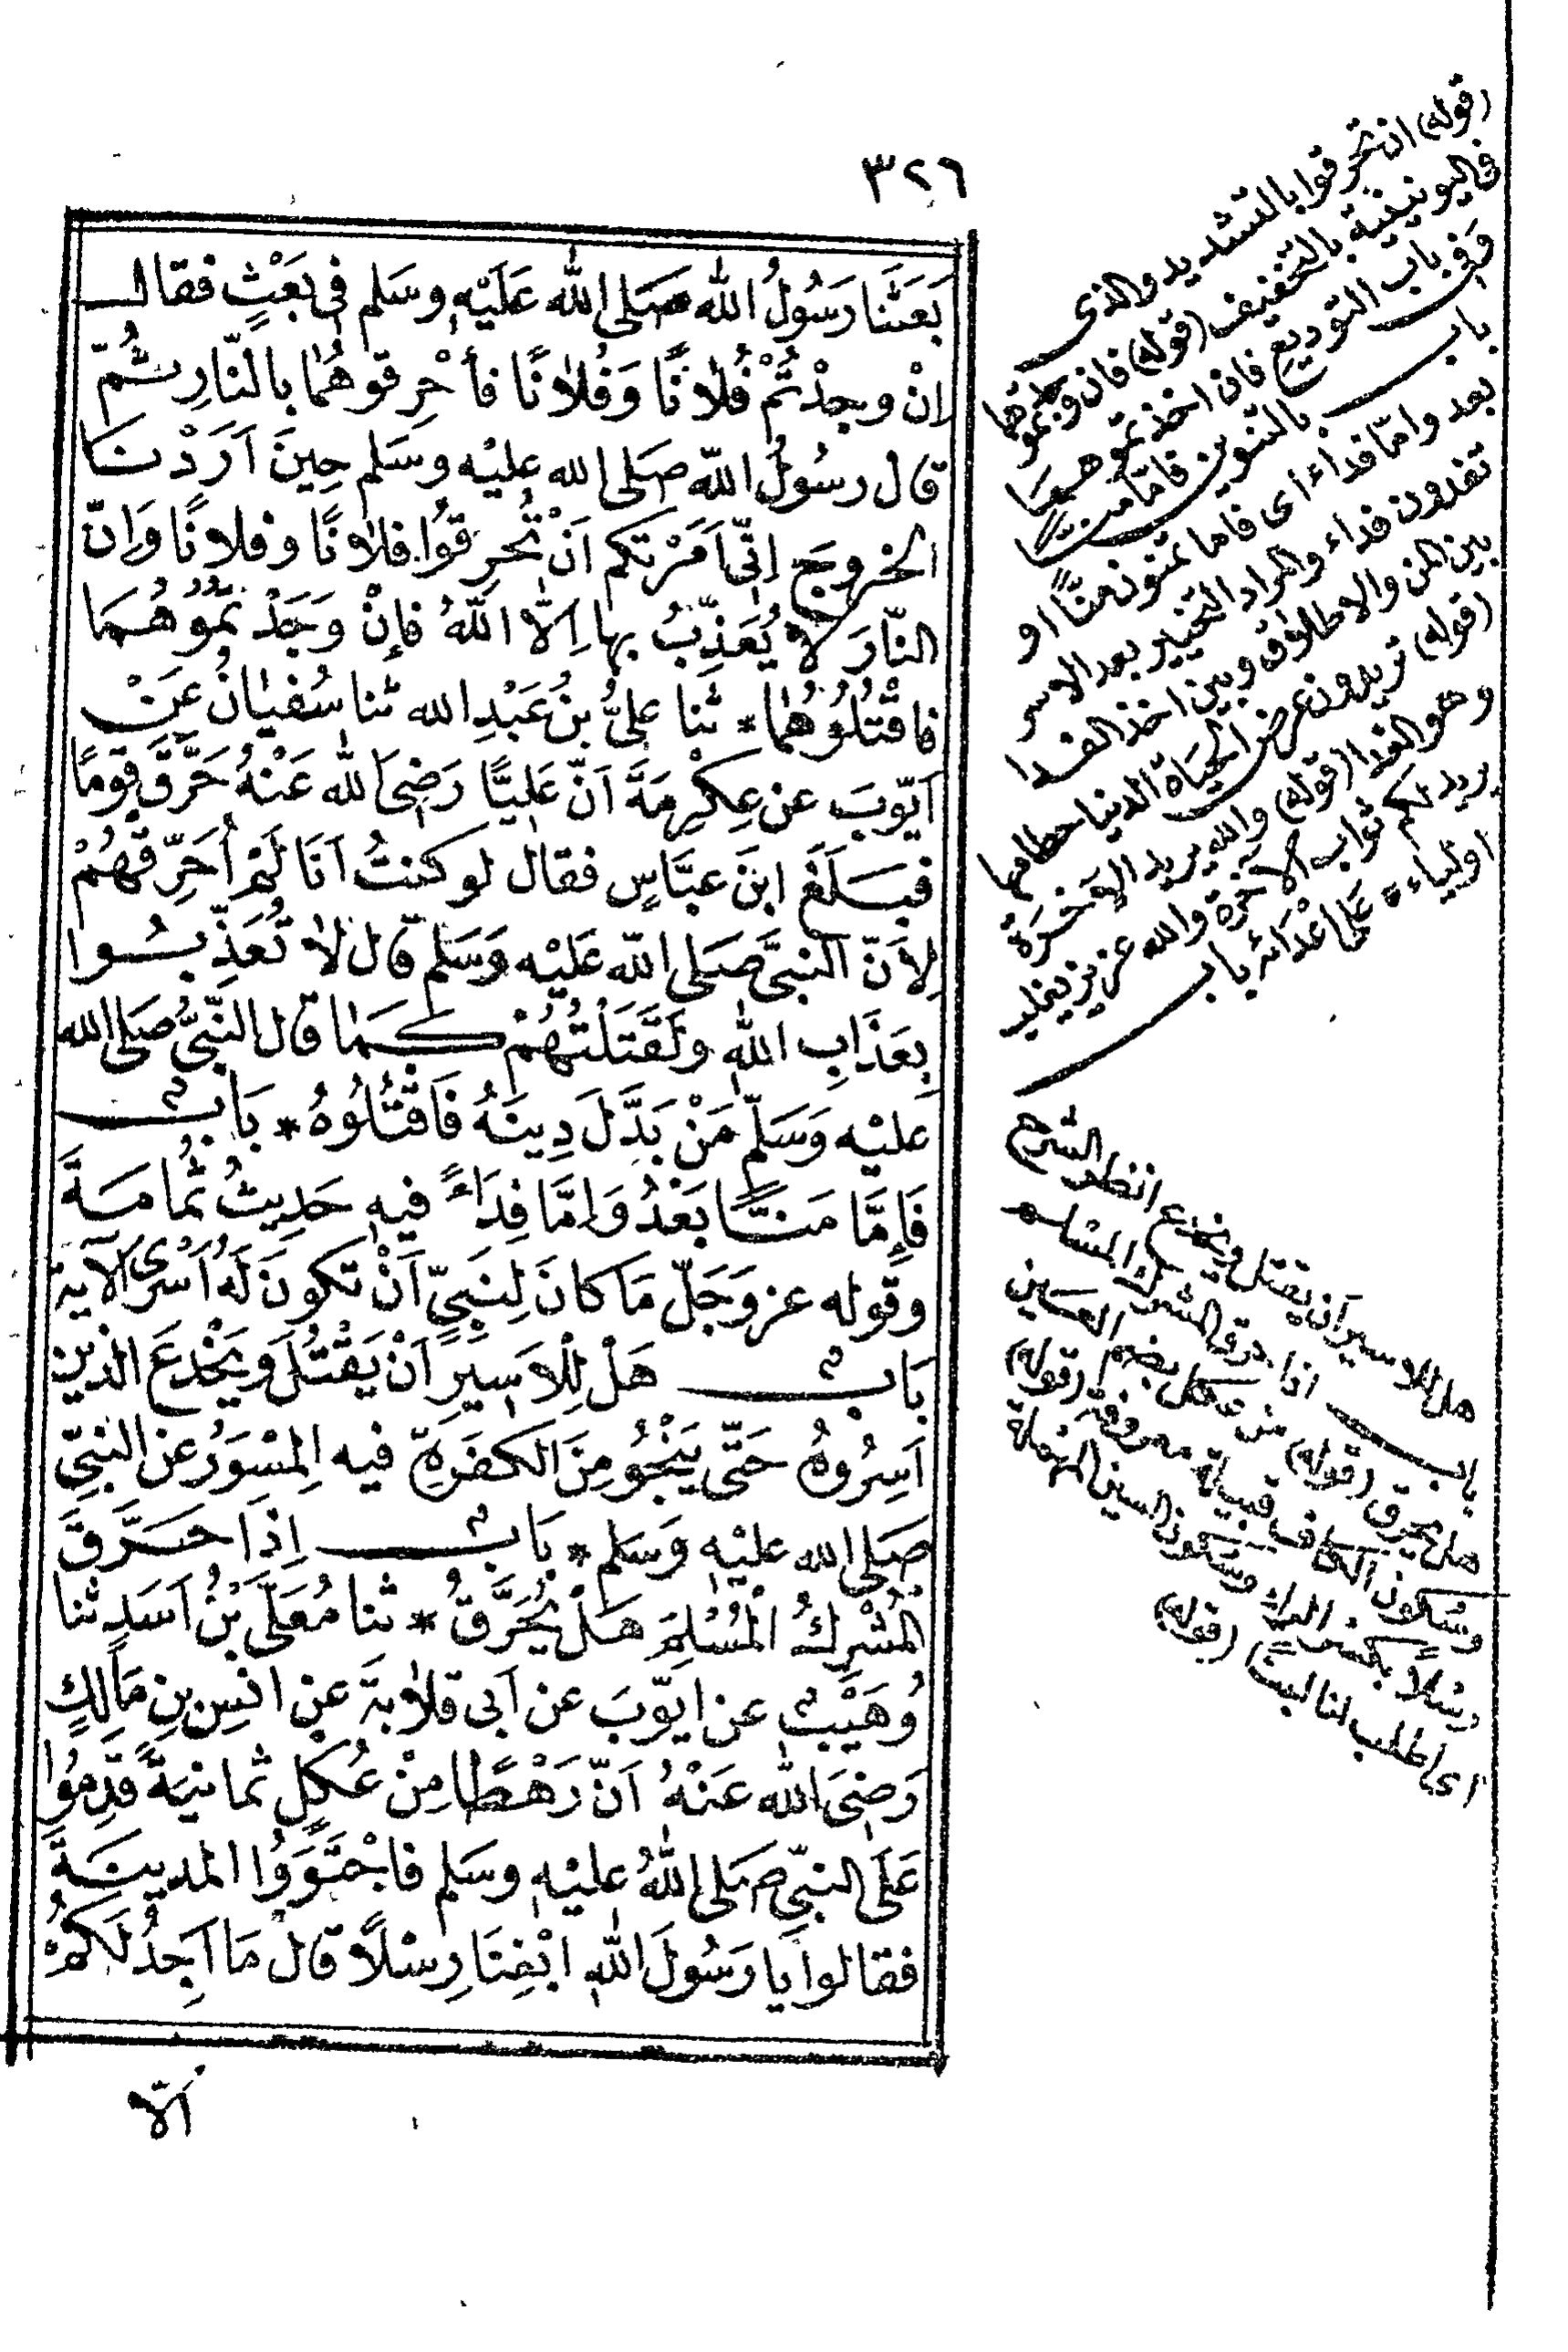 ٣٢٦
بَعَثَنَا رَسُولُ اللّٰه صَلى اللّٰه عَلَيْه وسَلم فى بَعْثٍ فقال
اِنْ وجدْتُمْ فُلانًا وَفُلانًا فأحْرِقوهُما بالنّارِ ثُمّ
قال رسُولُ اللّٰه صَلى الله عليْه وسَلم حِينَ اَرَدْنَا
الخروجَ اِنّى اَمَرْتكم اَنْ تُحرِقُوا فلانًا وفلانًا وَاِنّ
النّارَ لا يُعَذِّبُ بها اِلّا اللّٰهُ فإنْ وَجَدْتمُوهُمَا
فاقْتُلُوهُما * ثنا علىُّ بنُ عَبْدِ الله ثنا سُفيانُ عَنْ
اَيّوبَ عن عِكْرِمَةَ اَنّ عَلِيًّا رَضِىَ اللّٰه عَنْهُ حَرَّقَ قومًا
فبَلَغَ ابنَ عبَّاسٍ فقال لو كنتُ اَنَا لَمْ اُحَرِّقهُمْ
لِاَنّ النبىَّ صَلى اللّٰه عَلَيْه وَسَلم قال لا تُعَذِّبُوا
بِعَذَابِ اللّٰه ولَقَتَلْتُهُمْ كَمَا قال النّبىُّ صَلى الله
عليْه وَسَلّم مَنْ بَدَّلَ دِينَهُ فَاقْتُلُوهُ * بَابٌ
فَاِمَّا مَنًّا بَعْدُ وَاِمَّا فِدَاءً فيه حَدِيثُ ثُمَامَةَ
وقوله عز وَجَلّ مَا كانَ لِنَبِىٍّ اَنْ تكونَ لَهُ اَسْرٰى الآيةَ
بَابٌ هَلْ لِلْاَسِيرِ اَنْ يَقْتُلَ وَيَخْدَعَ الذين
اَسِرُوهُ حَتّى يَنْجُوَ مِنَ الكفَرَةِ فيه المِسْوَرُ عن النبىّ
صَلى الله عليْه وَسَلم * بَابٌ اِذَا حَرَّقَ
المُشْرِكُ الْمُسْلِمَ هَلْ يُحَرَّقُ * ثنا مُعَلَّى بْنُ اَسَدٍ ثنا
وُهَيْبٌ عن ايّوبَ عن اَبى قلابةَ عن انسِ بنِ مَالِكٍ
رَضِىَ اللّٰه عَنْهُ اَنّ رَهْطًا مِنْ عُكلٍ ثمانيَةً قدِمُوا
عَلَى النبّى صَلى اللّٰهُ عليْه وسَلم فاجْتَوَوُا المدينَةَ
فقالوا يا رَسُولَ اللّٰه ابْغِنَا رِسْلًا قال مَا اَجِدُ لَكُمْ
اَلّا
(قوله) ان تحرقوا بالتشديد والذى
فى اليونينية بالتخفيف (قوله) فان وجدتموهما
وفى باب التوديع فان اخذتموهما
باب بالتنوين فامّا منًّا
بعد وامّا فداء اى فاما تمنون منًّا او
تفدون فداء والمراد التخيير بعد الاسر
بين المن والاطلاق وبين اخذ الفدا
(قوله) تريدون عرض الحياة الدنيا حطامها
وهو الفدا (قوله) والله يريد الاخرة
يريد لكم ثواب الآخرة والله عزيز يغلب
اولياءه على اعدائه باب
هل للاسير أن يقتل ويخدع انظر الشرح
باب اذا حرق المشرك المسلم
هل يحرق (قوله) من عكل بضم العين
وسكون الكاف قبيلة معروفة (قوله)
رسْلًا بكسر الراء وسكون السين المهملة
اى اطلب لنا لبنًا (قوله)